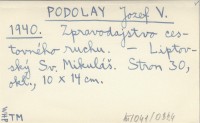 PODOLAY Jozef V.
1940. Zpravodajstvo ces-
tovného ruchu. – Liptov-
ský Sv. Mikuláš. Stron 30,
okł., 10 x 14 cm.
TM